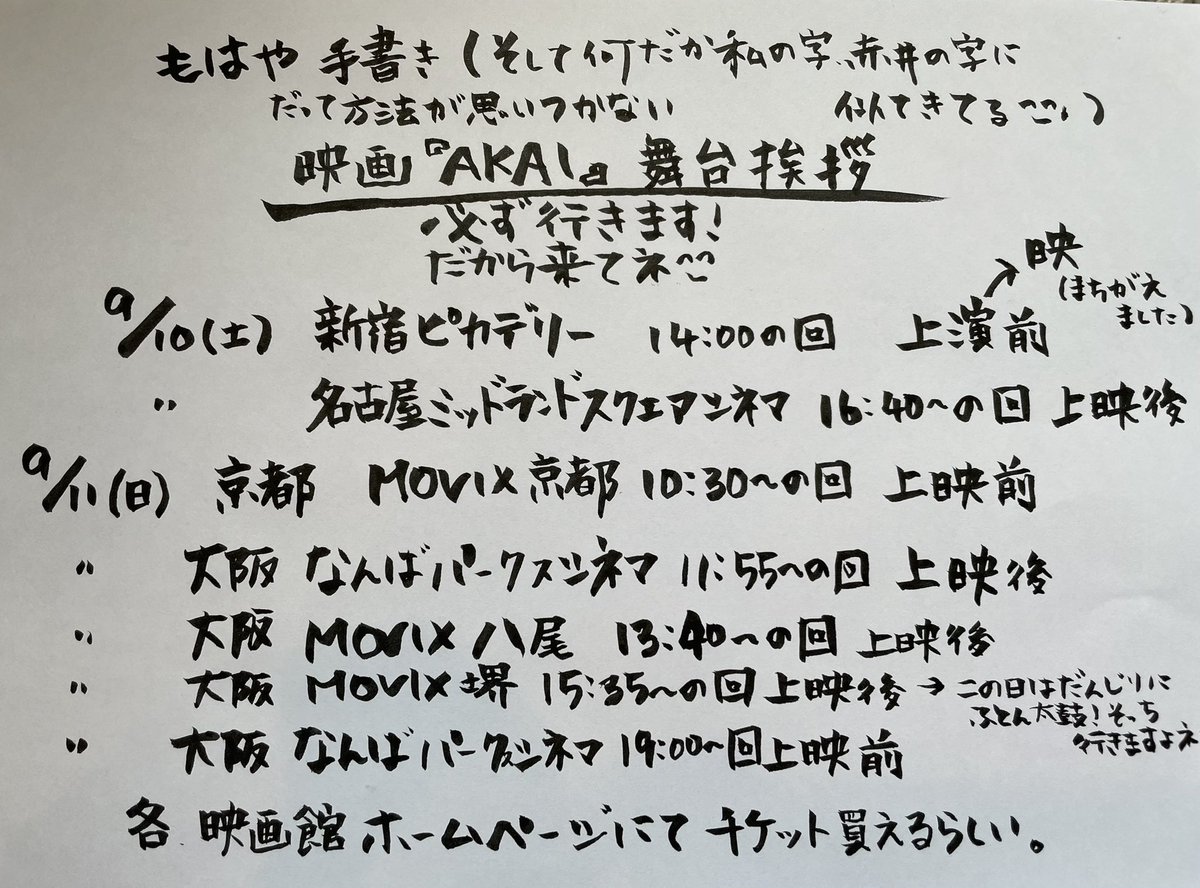 もはや 手書き (そして何だか私の字、赤井の字に
だって方法が思いつかない 似てきてる^^;)
映画『AKAI』舞台挨拶
必ず行きます!
だから来てネ^^
映
(まちがえ
ました)
9/10(土) 新宿ピカデリー 14:00の回 上演前
〃 名古屋ミッドランドスクエアシネマ 16:40〜の回 上映後
9/11(日) 京都 MOVIX京都 10:30〜の回 上映前
〃 大阪 なんばパークスシネマ 11:55〜の回 上映後
〃 大阪 MOVIX八尾 13:40〜の回 上映後
〃 大阪 MOVIX堺 15:35〜の回 上映後 → この日はだんじりに
ふとん太鼓!そっち
行きますよネ
〃 大阪 なんばパークスシネマ 19:00〜回 上映前
各 映画館 ホームページにて チケット買えるらしい。